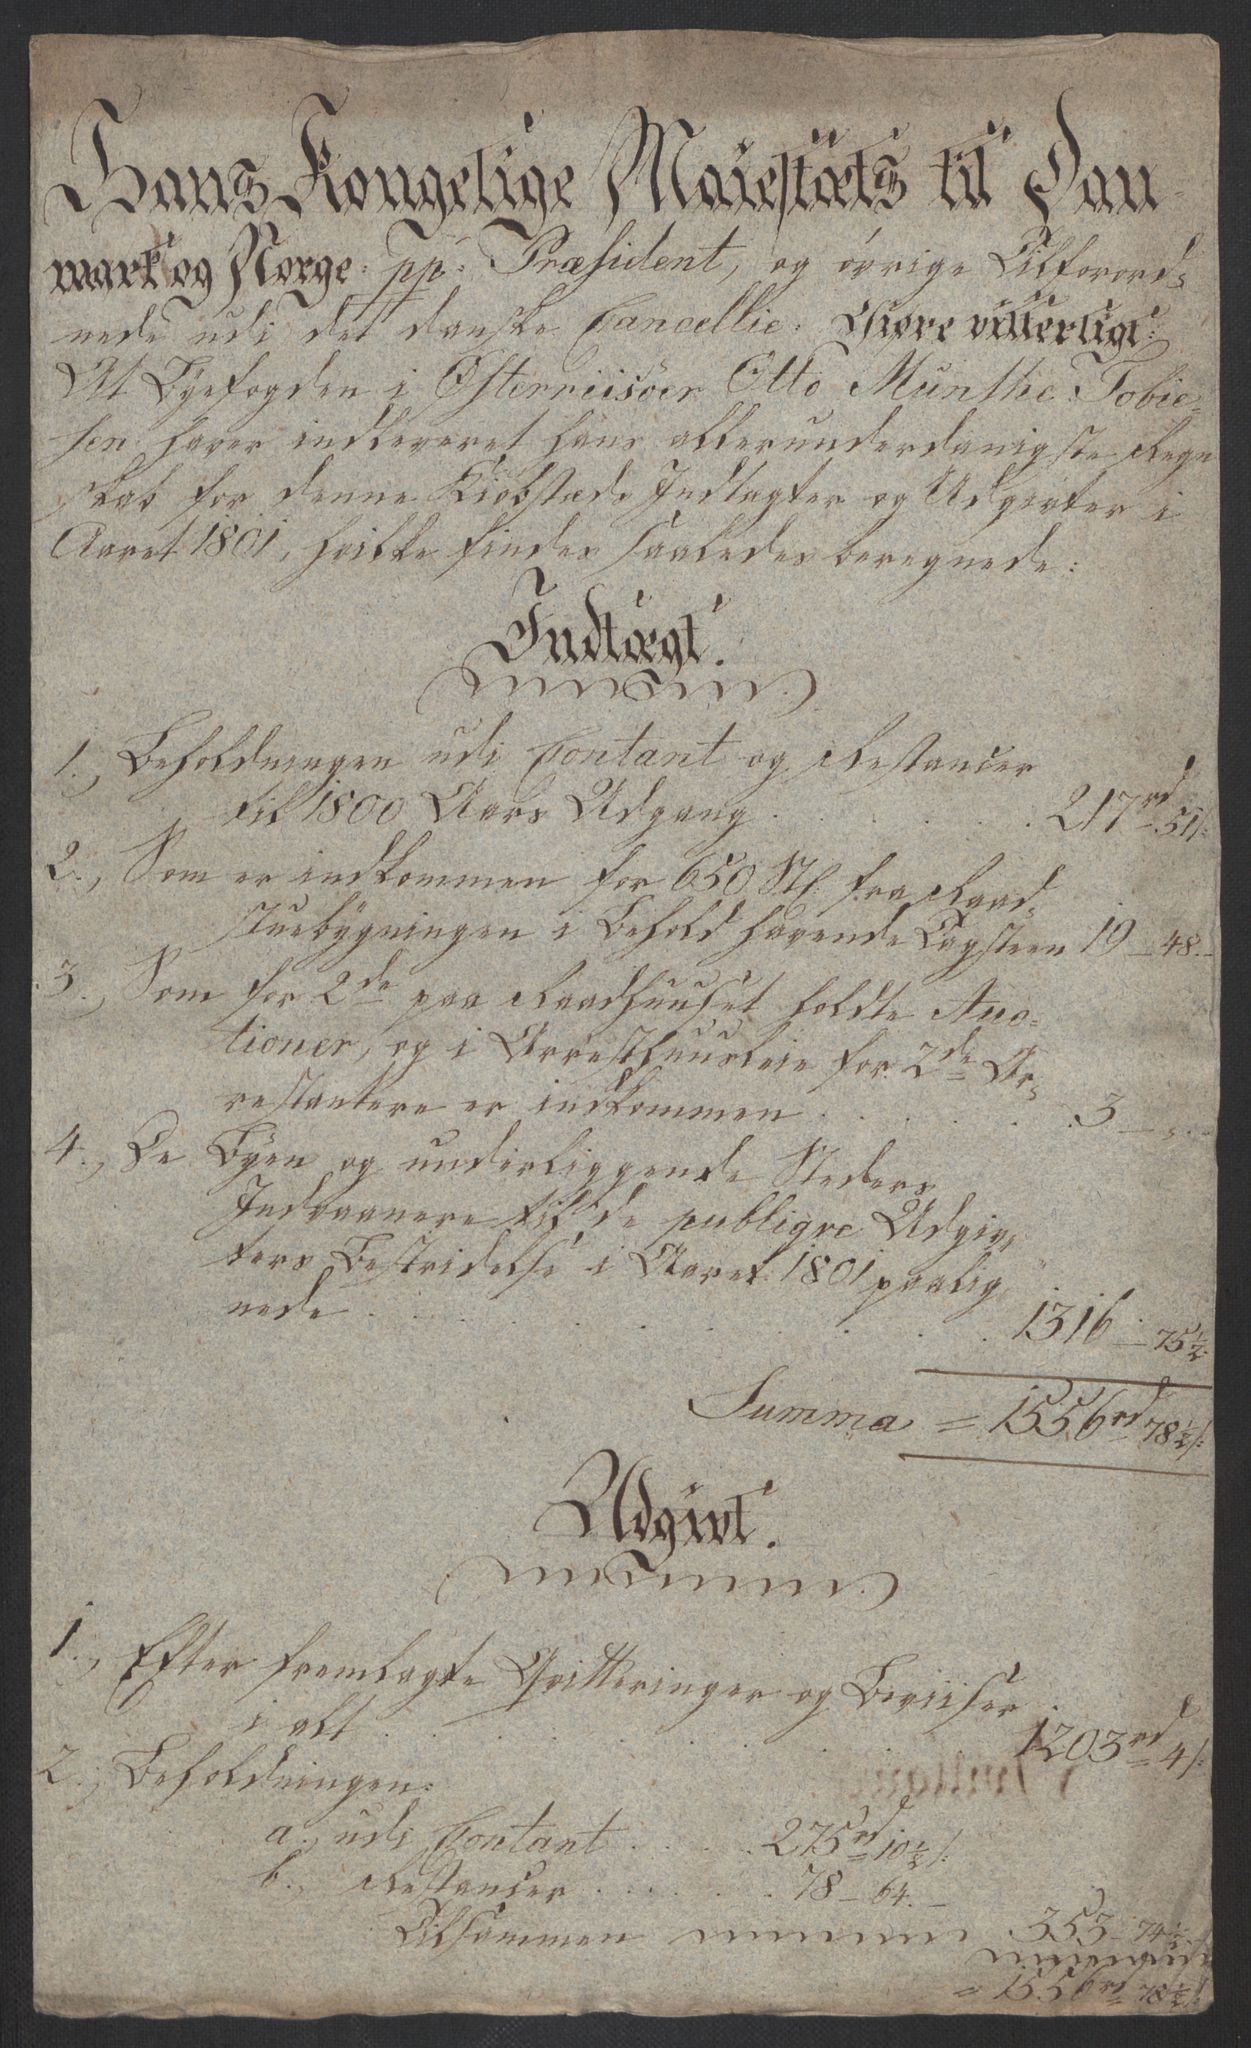 Hans Kongelige Maiestæts til Dan-
mark og Norge: pp: Præsident, og øvrige Tilforord-
nede udi det danske Cancellie: Giøre vitterligt:
At Byefogden i Østerriisöer Otto Munthe Tobie-
sen haver indleveret hans allerunderdanigste Regn-
skab for denne Kiøbstæds Indtægter og Udgivter i
Aaret 1801, hvilke findes saaledes beregnede:
Indtægt.
1., Beholdningen udi Contant og Restancer
til 1800 Aars Udgang . . . . . . 217 rd 51 s:
2., Som er indkommen for 650 St: fra Raad-
stuebygningen i Behold havende Tagsteen 19 – 48. –
3., Som for 2de paa Raadhuuset holdte Auc-
tioner, og i Arresthuusleie for 2de Ar-
restantere er indkommen . . . . . . 3 – „ . –
4., De Byen og underliggende Steders
Indvaanere til de publique Udgiv-
ters Bestridelse i Aaret 1801 paalig-
nede . . . . . . . . . 1316 – 75½.
Summa = 1556 rd 78½ s:
Udgivt.
1., Efter fremlagte Qvitteringer og Beviiser
i alt . . . . . . . . 1203 rd 4 s:
2., Beholdningen:
a., udi Contant . . . . 275 rd 10½ s:
b., Restancer . . . . . . 78 – 64. –
Tilsammen 353 – 74½
= 1556 rd 78½ s: